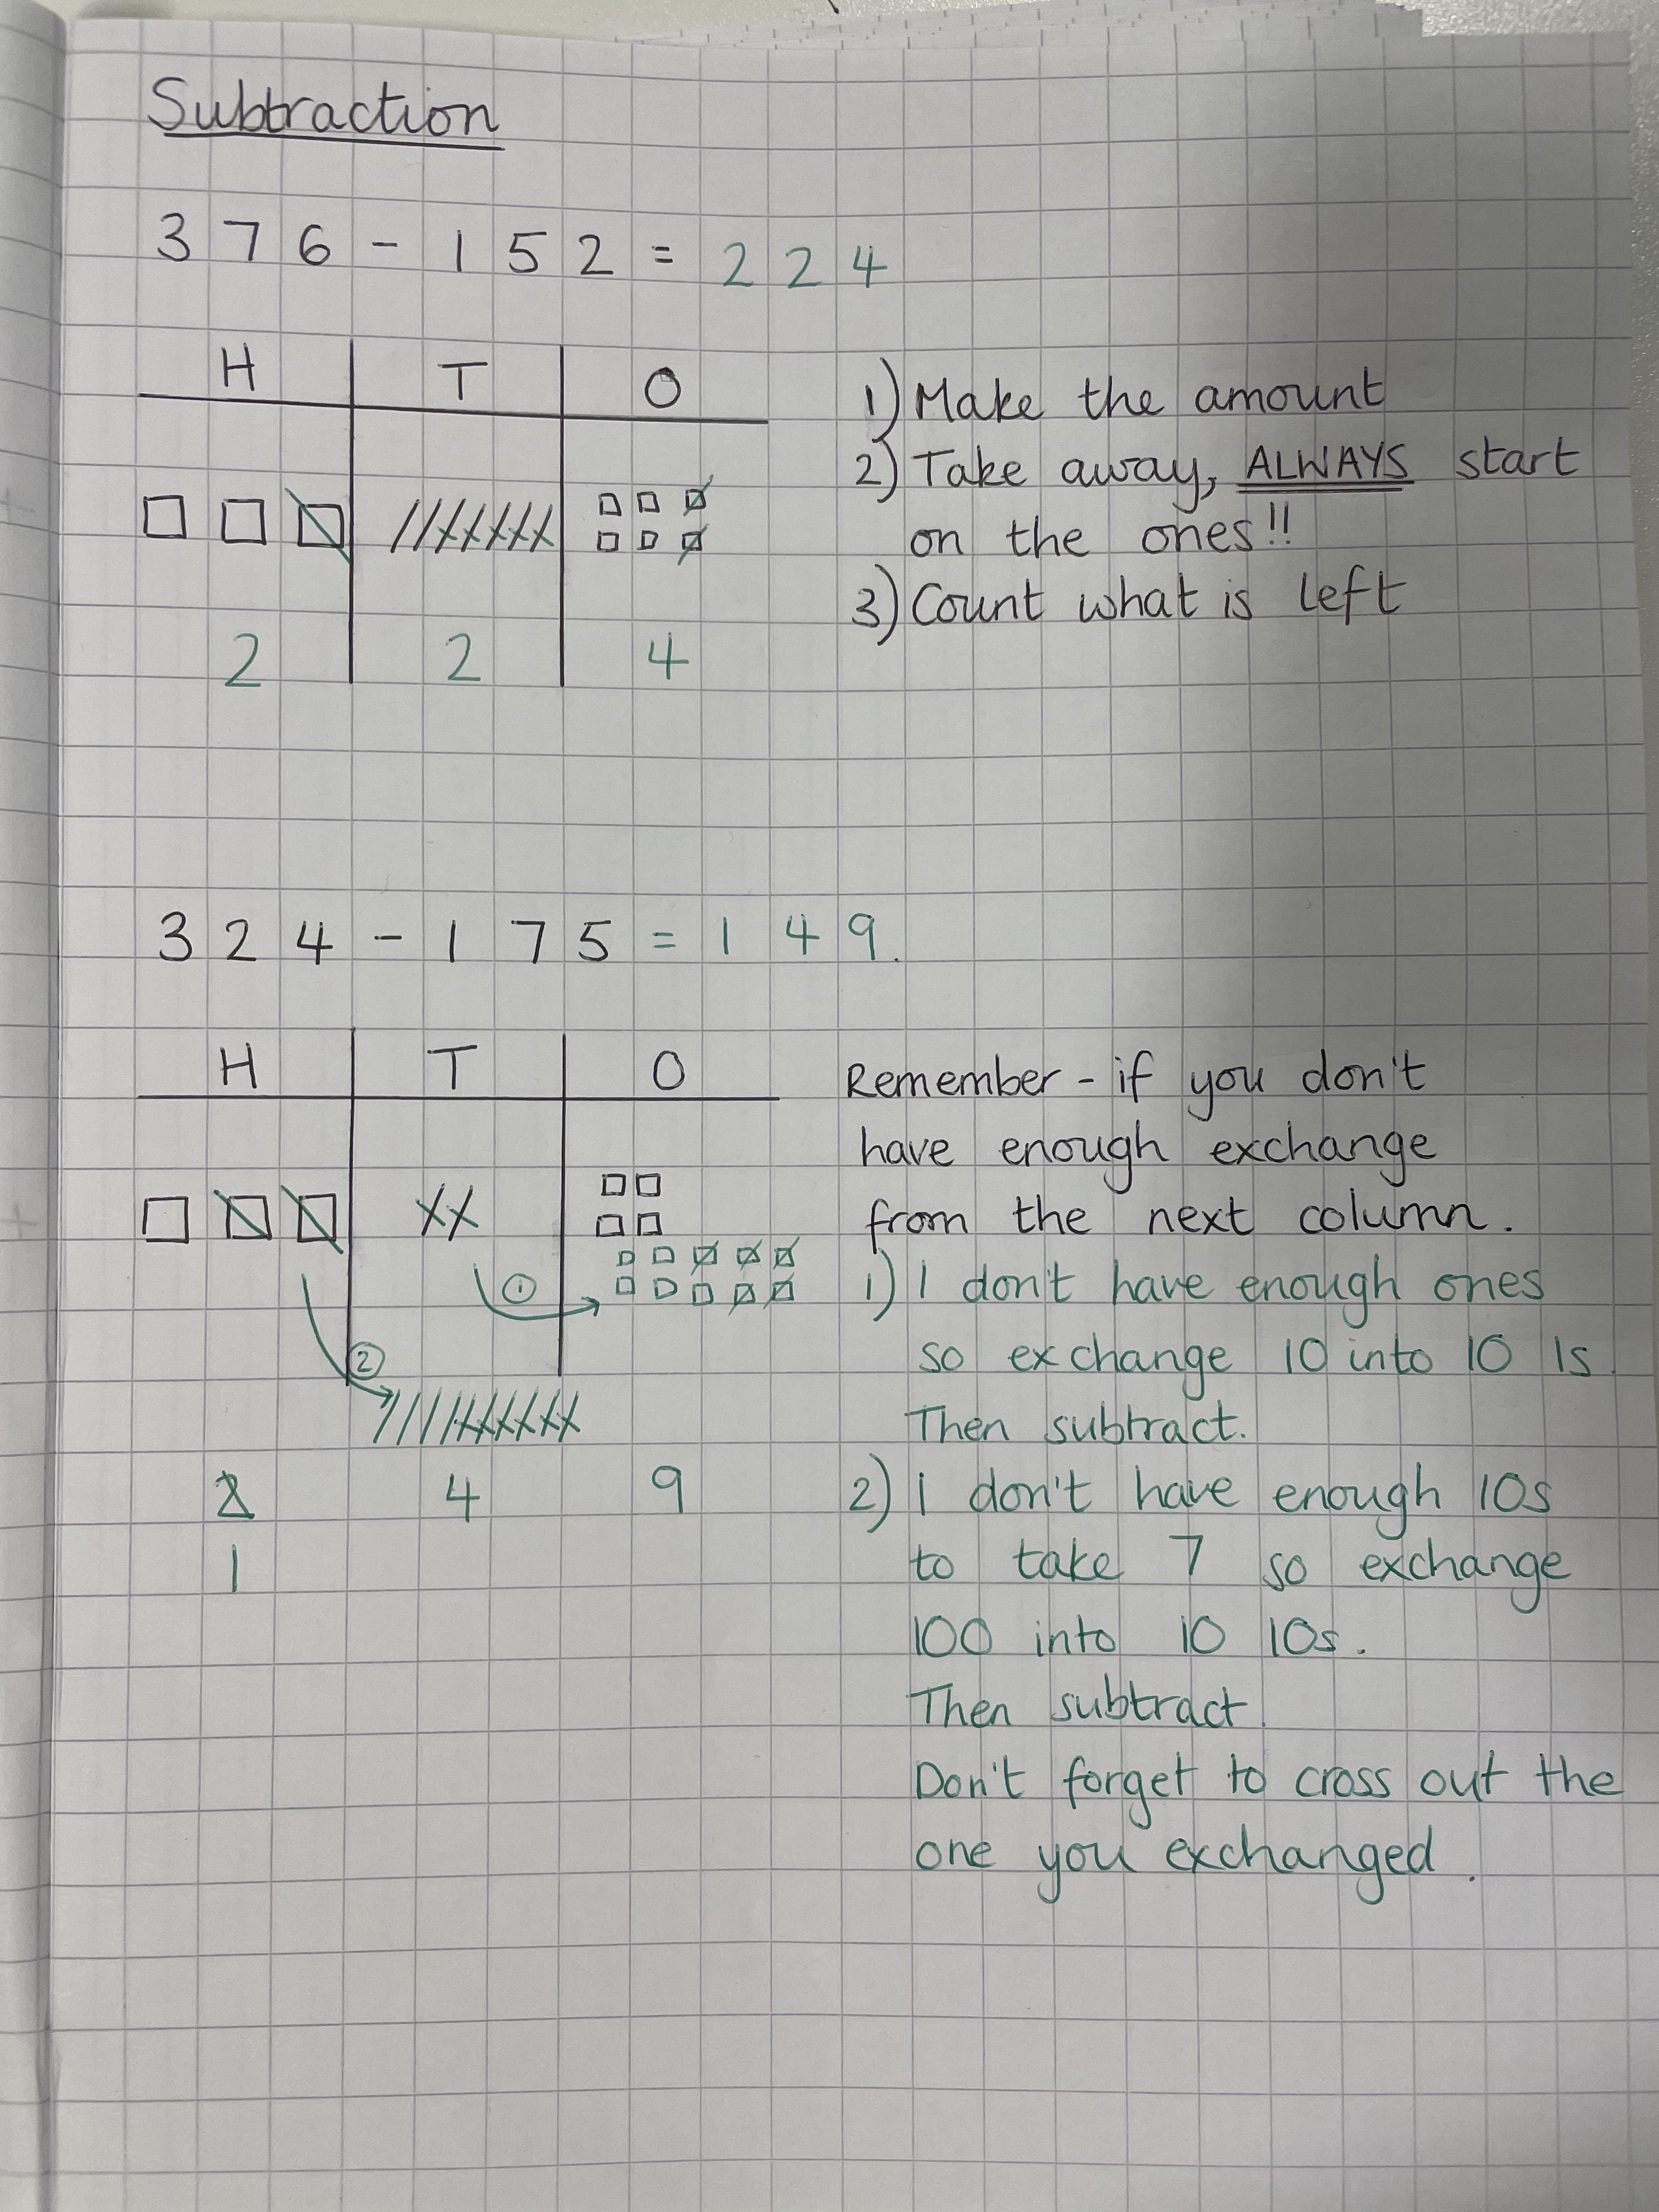 Subtraction
376 - 152 = 224
H T O
1) Make the amount
2) Take away, ALWAYS start
on the ones!!
3) Count what is left
2 2 4
324 - 175 = 149.
H T O
Remember - if you don't
have enough exchange
from the next column.
1) I don't have enough ones
so exchange 10 into 10 1s.
Then subtract.
1
2
2 4 9
1
2) I don't have enough 10s
to take 7 so exchange
100 into 10 10s.
Then subtract.
Don't forget to cross out the
one you exchanged.